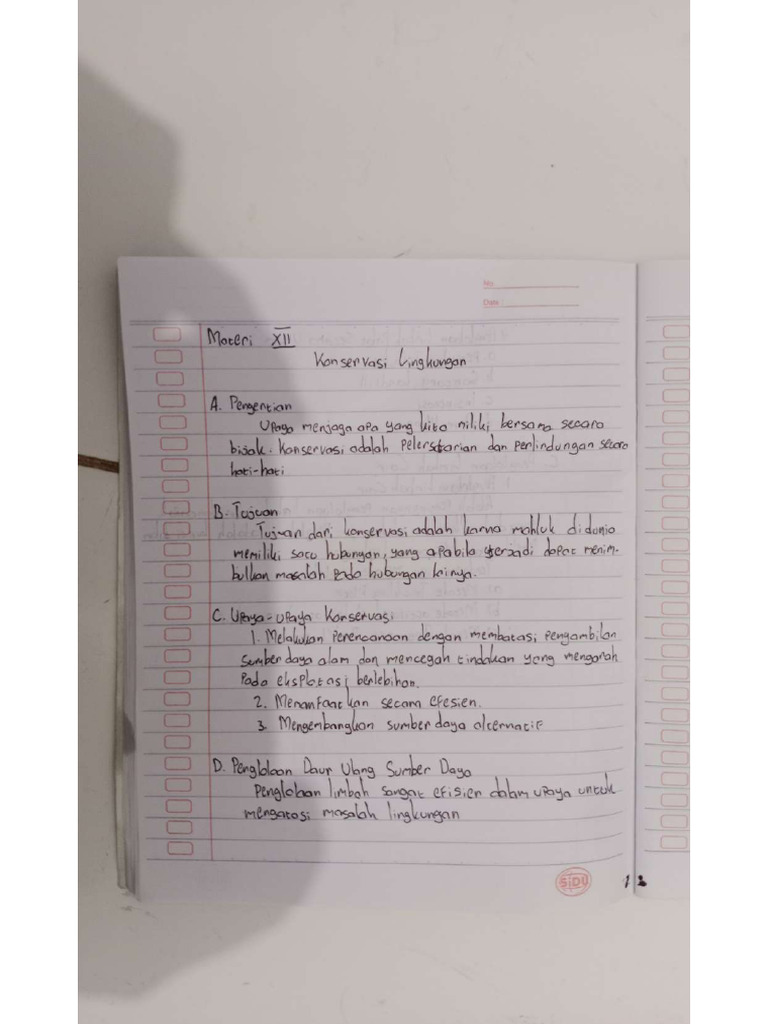 No
Date :
Materi XII
Konservasi Lingkungan
A. Pengertian
Upaya menjaga apa yang kita miliki bersama secara
bijak. Konservasi adalah Pelerstarian dan perlindungan secara
hati-hati
B. Tujuan
Tujuan dari konservasi adalah karna mahluk di dunia
memiliki satu hubungan, yang apabila terjadi dapat menim-
bulkan masalah pada hubungan lainya.
C. Upaya-upaya Konservasi
1. Melakukan Perencanaan dengan membatasi pengambilan
sumber daya alam dan mencegah tindakan yang mengarah
pada eksplotasi berlebihan.
2. Memanfaatkan secara efesien.
3. Mengembangkan sumber daya alternatif
D. Penglolaan Daur Ulang Sumber Daya
Penglolaan limbah sangat efisien dalam upaya untuk
mengatasi masalah lingkungan
SiDU